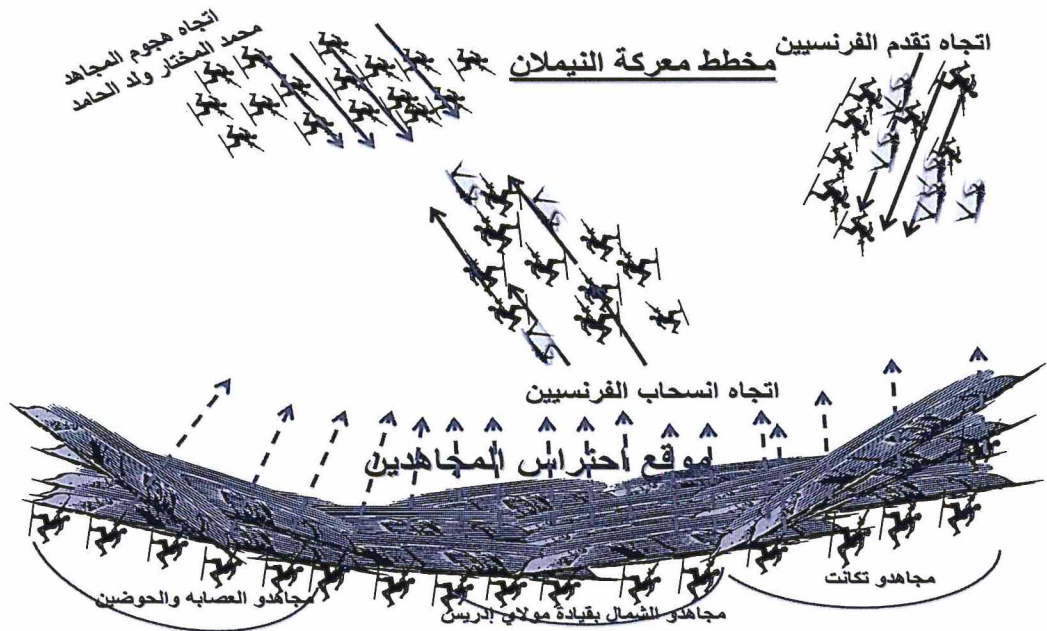 مخطط معركة النيملان
اتجاه تقدم الفرنسيين
اتجاه هجوم المجاهد
محمد المختار ولد الحامد
اتجاه انسحاب الفرنسيين
موقع احتراس المجاهدين
مجاهدو تكانت
مجاهدو الشمال بقيادة مولاي إدريس
مجاهدو العصابه والحوضين